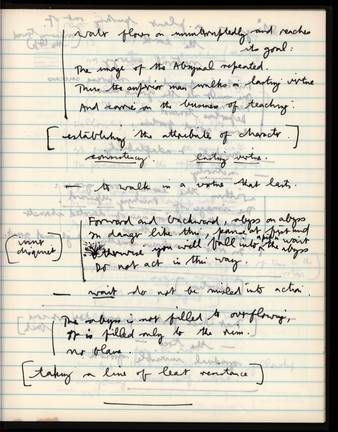 water flows on uninterruptedly and reaches
its goal:
The image of the Abysmal repeated.
Thus the superior man walks in lasting virtue
And carries on the business of teaching.
[establishing the attribute of character.]
consistency. lasting virtue.
— to walk in a virtue that lasts.
Forward and backward, abyss on abyss
In danger like this, pause at first and wait
Otherwise you will fall into a pit in the abyss
Do not act in this way.
[inner disquiet]
— wait do not be misled into action.
The abyss is not filled to overflowing,
It is filled only to the rim.
No blame.
[taking a line of least resistance]